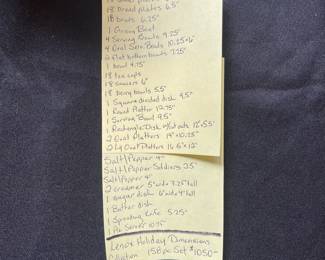 18 Bread plates 6.5"
18 bowls 6.25"
1 Gravy Boat
4 Serving Bowls 9.25"
4 Oval Serv. Bowls 10.25x6"
2 flat bottom bowls 7.25"
1 bowl 4.75"
18 tea cups
18 saucers 6"
18 berry bowls 5.5
1 Square divided dish 9.5"
1 Round Platter 12.75"
1 Serving Bowl 9.5"
1 Rectangle Dish w/cut outs
2 Oval Platters 14"x10.25"
2 Lg Oval Platters 16.5"x12"
Salt/Pepper 4"
Salt/Pepper Soldiers 3.5"
Salt/Pepper 4"
2 creamer 5" wide 3.25" tall
1 sugar dish 6" wide 4" tall
1 Butter dish
1 Spreading Knife 5.25"
1 Pie Server 10.75"
Lenox Holiday Dimensions
158 pc Set $1050-